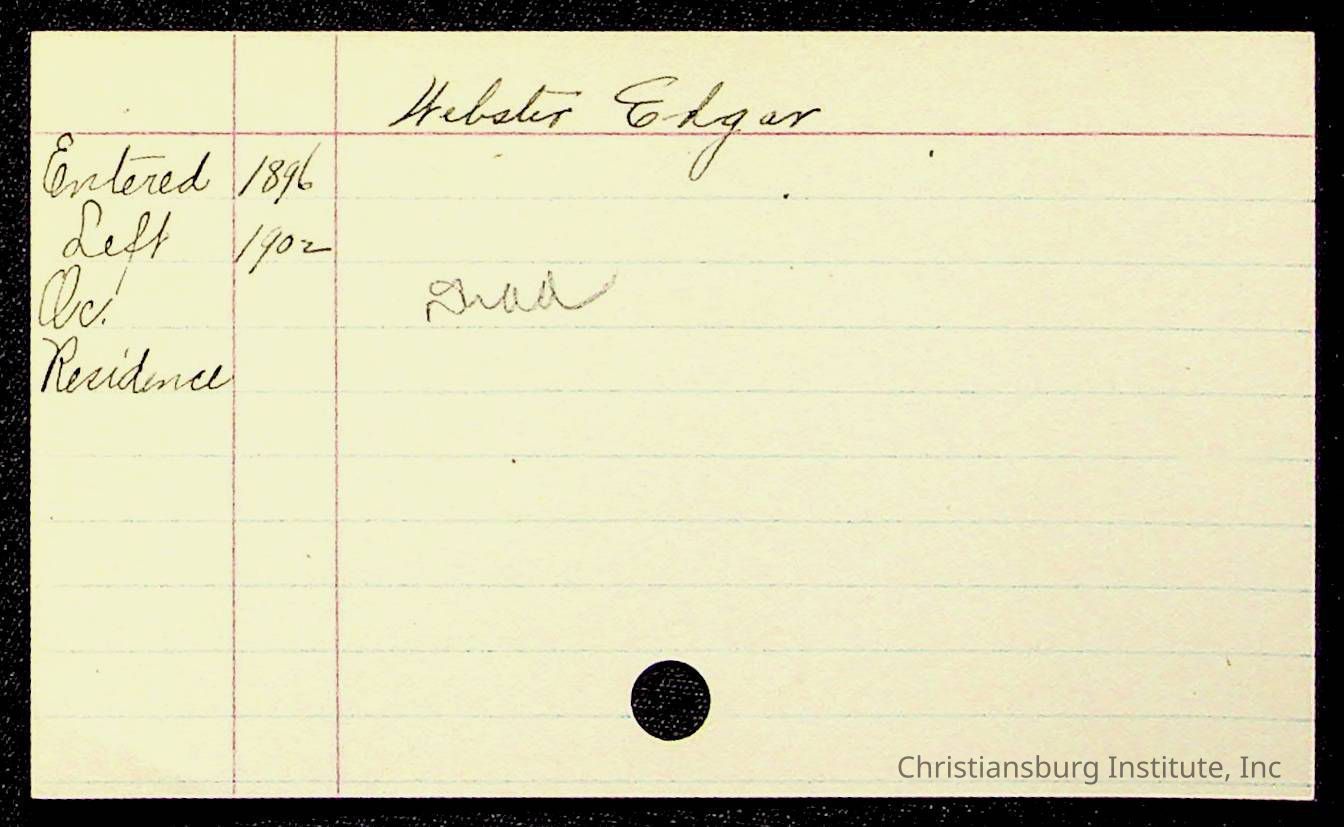 Webster Edgar
Entered 1896
Left 1902
Oc.
Residence
Christiansburg Institute, Inc